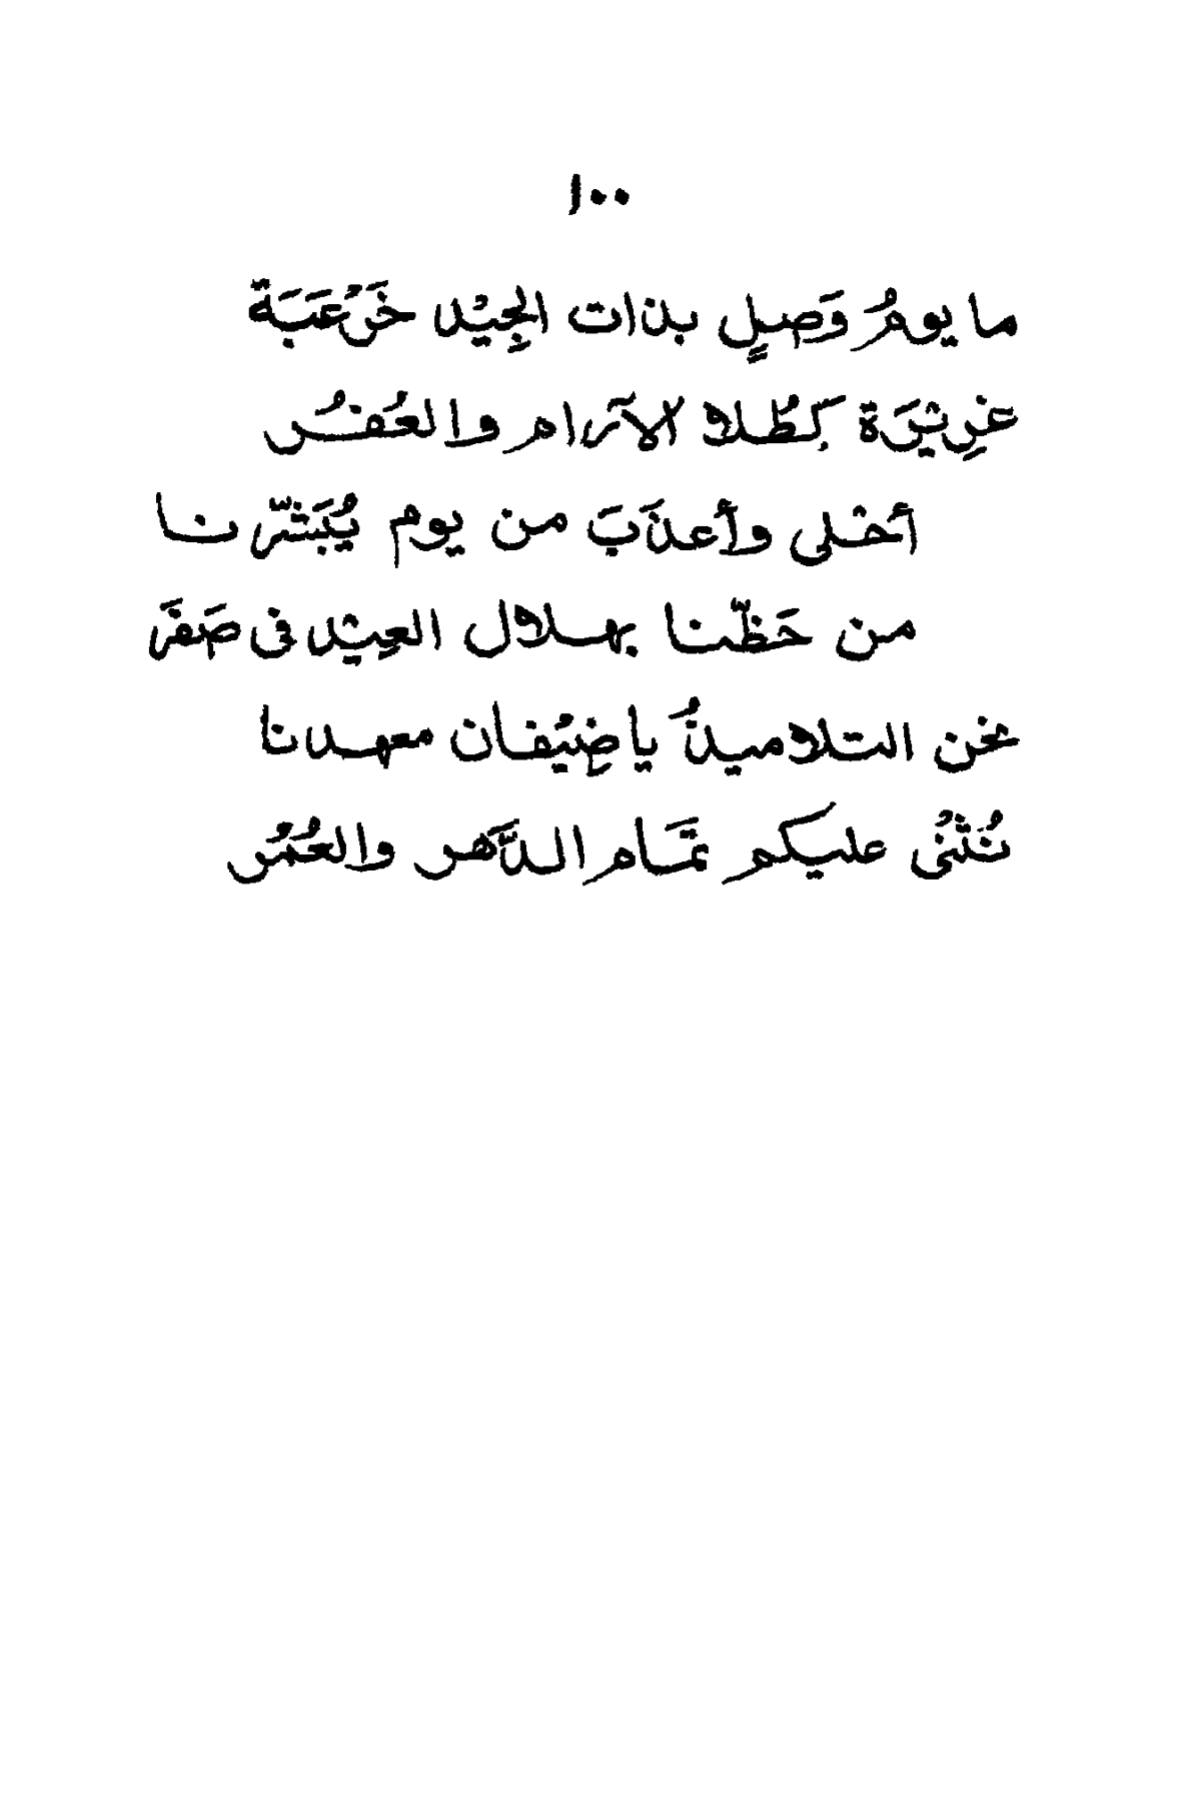 ١٠٠
ما يومُ وَصلٍ بذات الجِيْد خَرْعَبَة
غرِيْرَة كطُلا الآرام والعُفُر
أحْلى وأعذَبَ من يوم يُبَشّرنا
من حَظّنا بهلال العِيْد فى صَفَر
نحن التلاميذُ يا ضِيْفان معهدنا
نُثْنْى عليكم تمَام الدَّهر والعُمُر